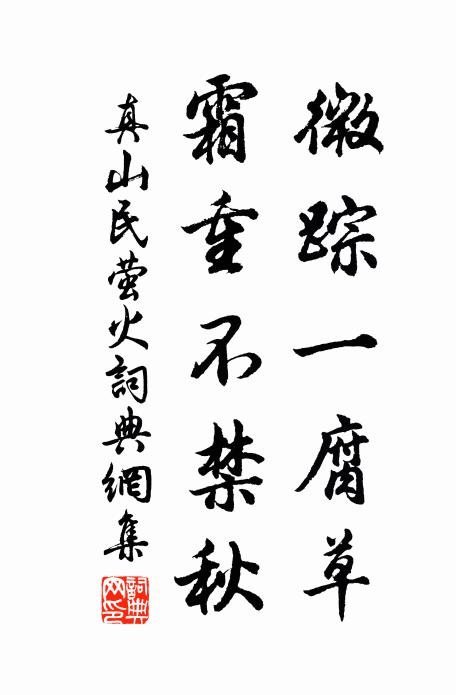 微踪一腐草
霜重不禁秋
真山民萤火詞典網集
詞典网印